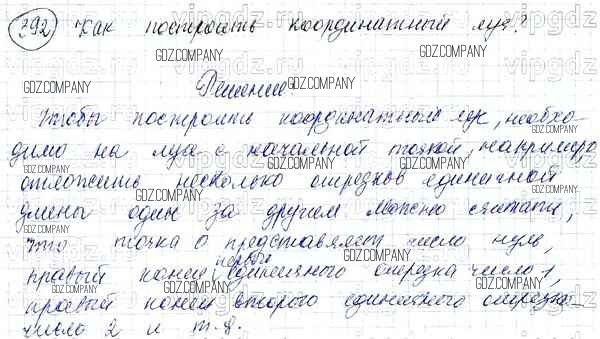 292 Как построить координатный луч?
Решение
Чтобы построить координатный луч, необхо-
димо на луче с начальной точкой, например
отложить несколько отрезков единичной
длины один за другим. Можно считать,
что точка О представляет число нуль,
правый конец первый единичного отрезка число 1,
правый конец второго единичного отрезка -
число 2 и т.д.
GDZ.COMPANY
vipgdz.ru